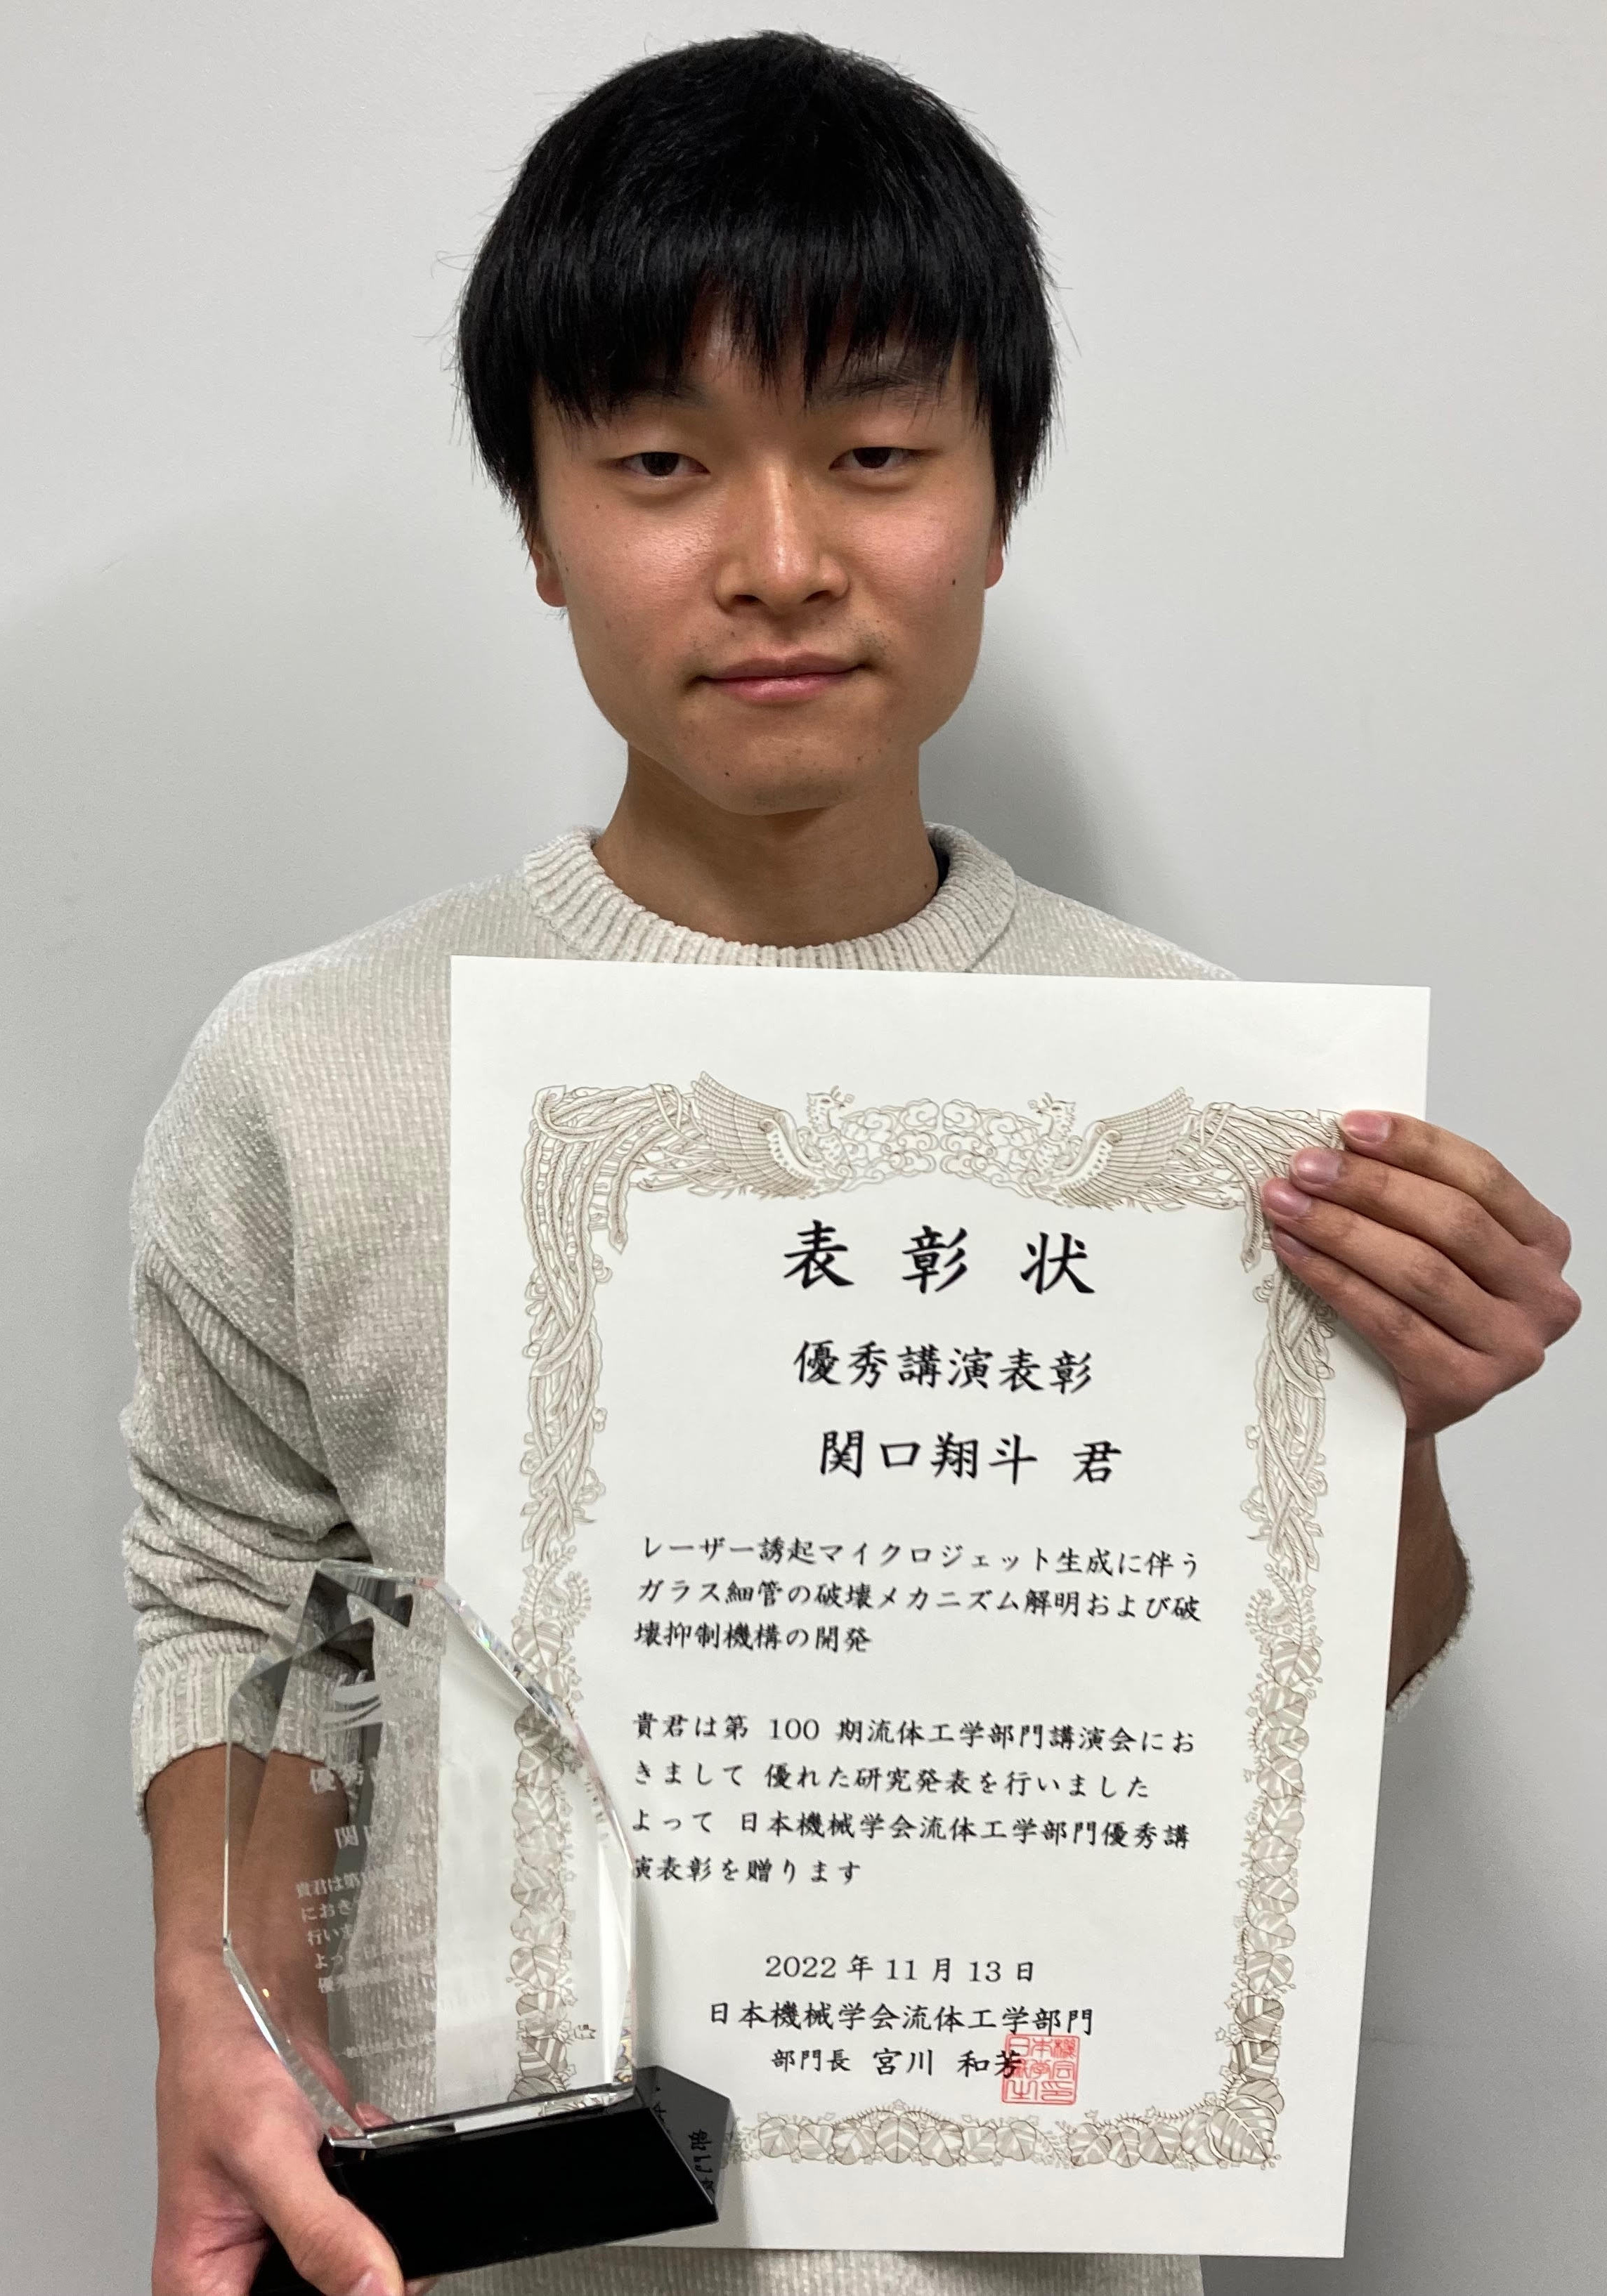 表彰状
優秀講演表彰
関口翔斗 君
レーザー誘起マイクロジェット生成に伴う
ガラス細管の破壊メカニズム解明および破
壊抑制機構の開発
貴君は第 100 期流体工学部門講演会にお
きまして 優れた研究発表を行いました
よって 日本機械学会流体工学部門優秀講
演表彰を贈ります
2022 年 11 月 13 日
日本機械学会流体工学部門
部門長 宮川 和芳
優秀
関口
貴君は第
におき
行いま
よって
優秀